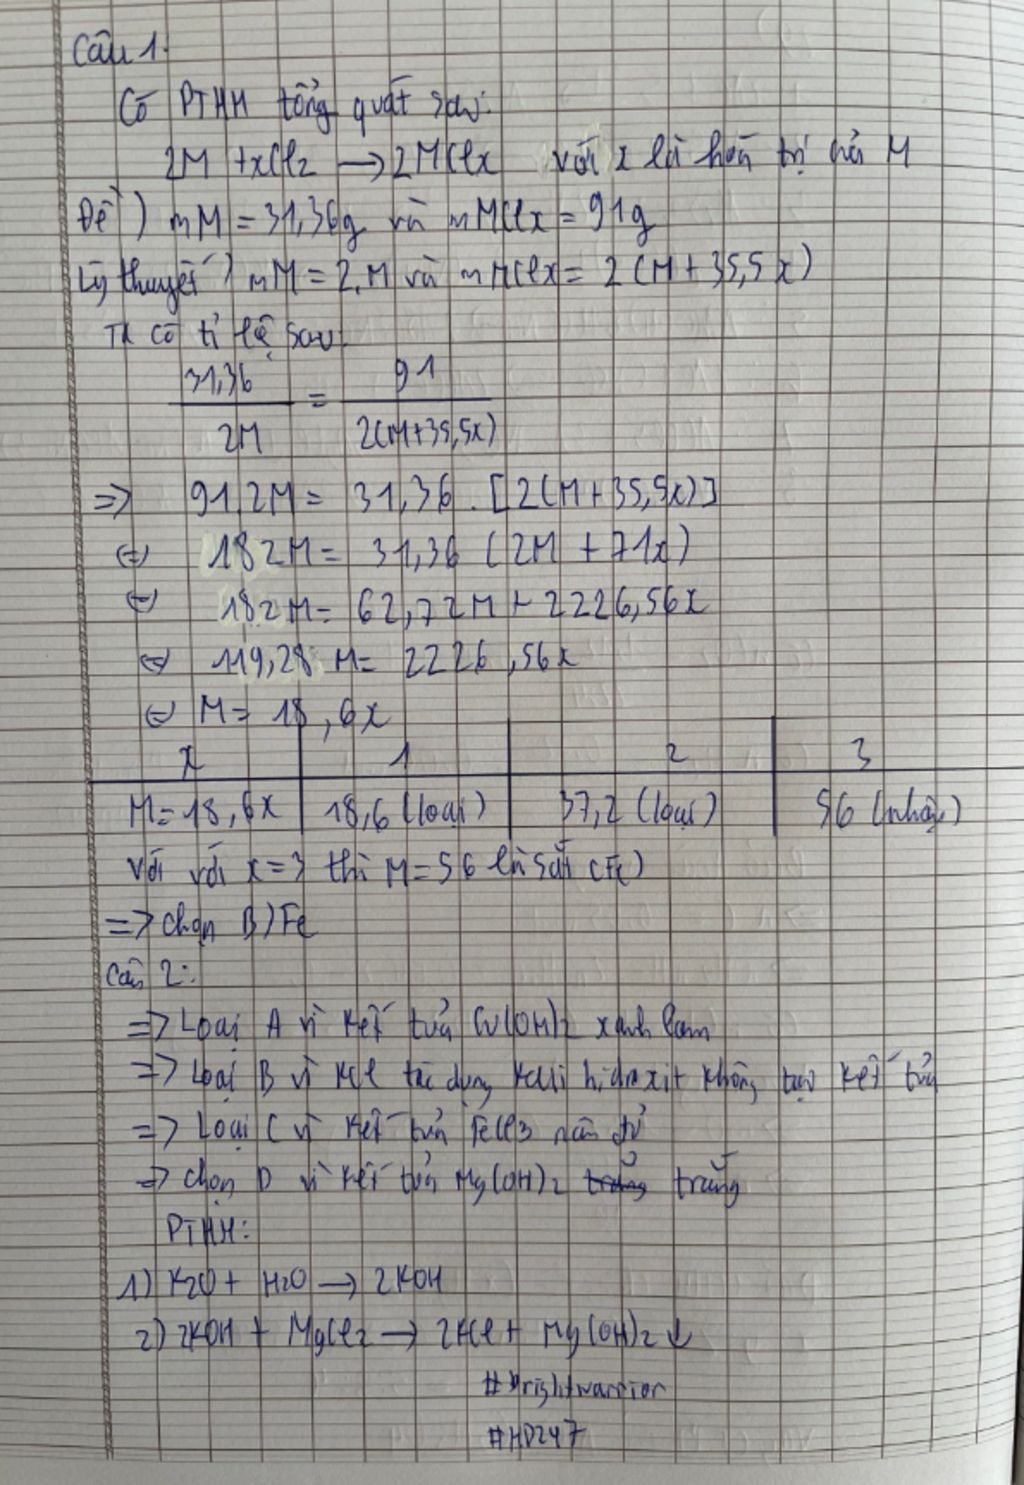 Câu 1:
Có PTHH tổng quát sau:
2M + xCl2 → 2MClx với x là hoá trị của M
Đề ) mM = 31,36g và mMClx = 91g
Lý thuyết ) mM = 2.M và mMClx = 2(M+35,5x)
Ta có tỉ lệ sau
31,36 / 2M = 91 / 2(M+35,5x)
=> 91.2M = 31,36 . [2(M+35,5x)]
⇔ 182M = 31,36 (2M + 71x)
⇔ 182M = 62,72M + 2226,56x
⇔ 119,28 M = 2226,56x
⇔ M = 18,6x
x | 1 | 2 | 3
M = 18,6x | 18,6 (loại) | 37,2 (loại) | 56 (nhận)
Với với x = 3 thì M = 56 là Sắt (Fe)
=> chọn B) Fe
Câu 2:
=> Loại A vì kết tủa Cu(OH)2 xanh lam
=> Loại B vì KCl tác dụng kali hidroxit không tạo kết tủa
=> Loại C vì kết tủa FeCl3 nâu đỏ
=> chọn D vì kết tủa Mg(OH)2 trắng trắng
PTHH:
1) K2O + H2O → 2KOH
2) 2KOH + MgCl2 → 2KCl + Mg(OH)2 ↓
#brightwarrior
#HD247